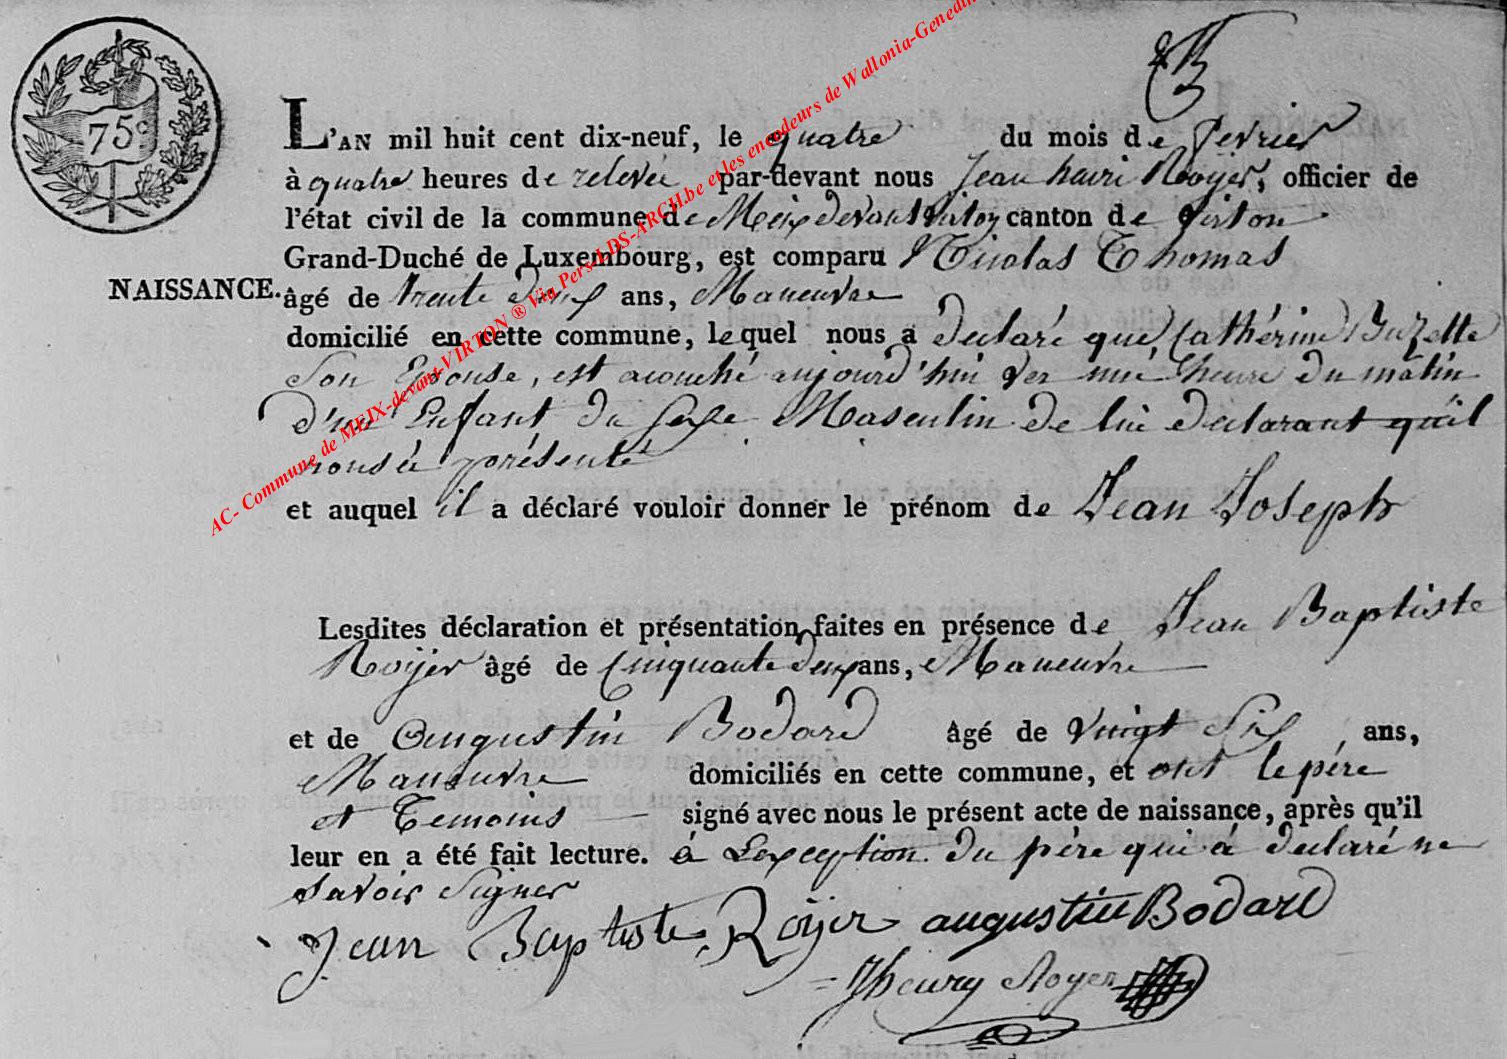 75c
L'AN mil huit cent dix-neuf, le quatre du mois de fevrier
à quatre heures de relevée par-devant nous Jean henri Roÿer, officier de
l'état civil de la commune de Meix devant Virton canton de Virton
Grand-Duché de Luxembourg, est comparu Nicolas Thomas
NAISSANCE. âgé de trente deux ans, Maneuvre
domicilié en cette commune, lequel nous a declaré que Cathérine Buzette
son Epouse, est acouché aujourd'hui ver une heure du matin
d'un Enfant du sexe Masculin de lui declarant qu'il
nous à présenté
et auquel il a déclaré vouloir donner le prénom de Jean Joseph
Lesdites déclaration et présentation faites en présence de Jean Baptiste
Roÿer âgé de Cinquante deux ans, Maneuvre
et de Augustin Bodard âgé de vingt Six ans,
Maneuvre domiciliés en cette commune, et ont le père
et Temoins signé avec nous le présent acte de naissance, après qu'il
leur en a été fait lecture. à Lexception du père qui à declaré ne
savoir Signer
Jean Baptiste Roÿer augustin Bodard
Jhenry Royer
AC- Commune de MEIX-devant-VIRTON ® Via Pers-LDS-ARCH.be et les encodeurs de Wallonia-Genedin